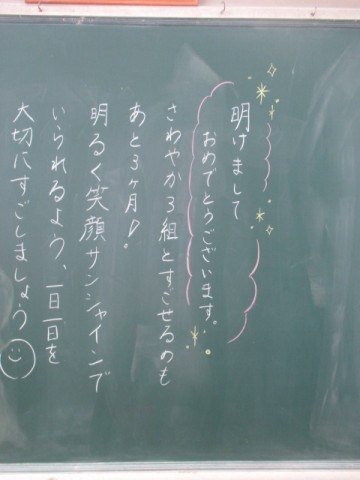 明けまして
おめでとうございます。
さわやか3組とすごせるのも
あと3ヶ月!。
明るく笑顔サンシャインで
いられるよう、一日一日を
大切にすごしましょう